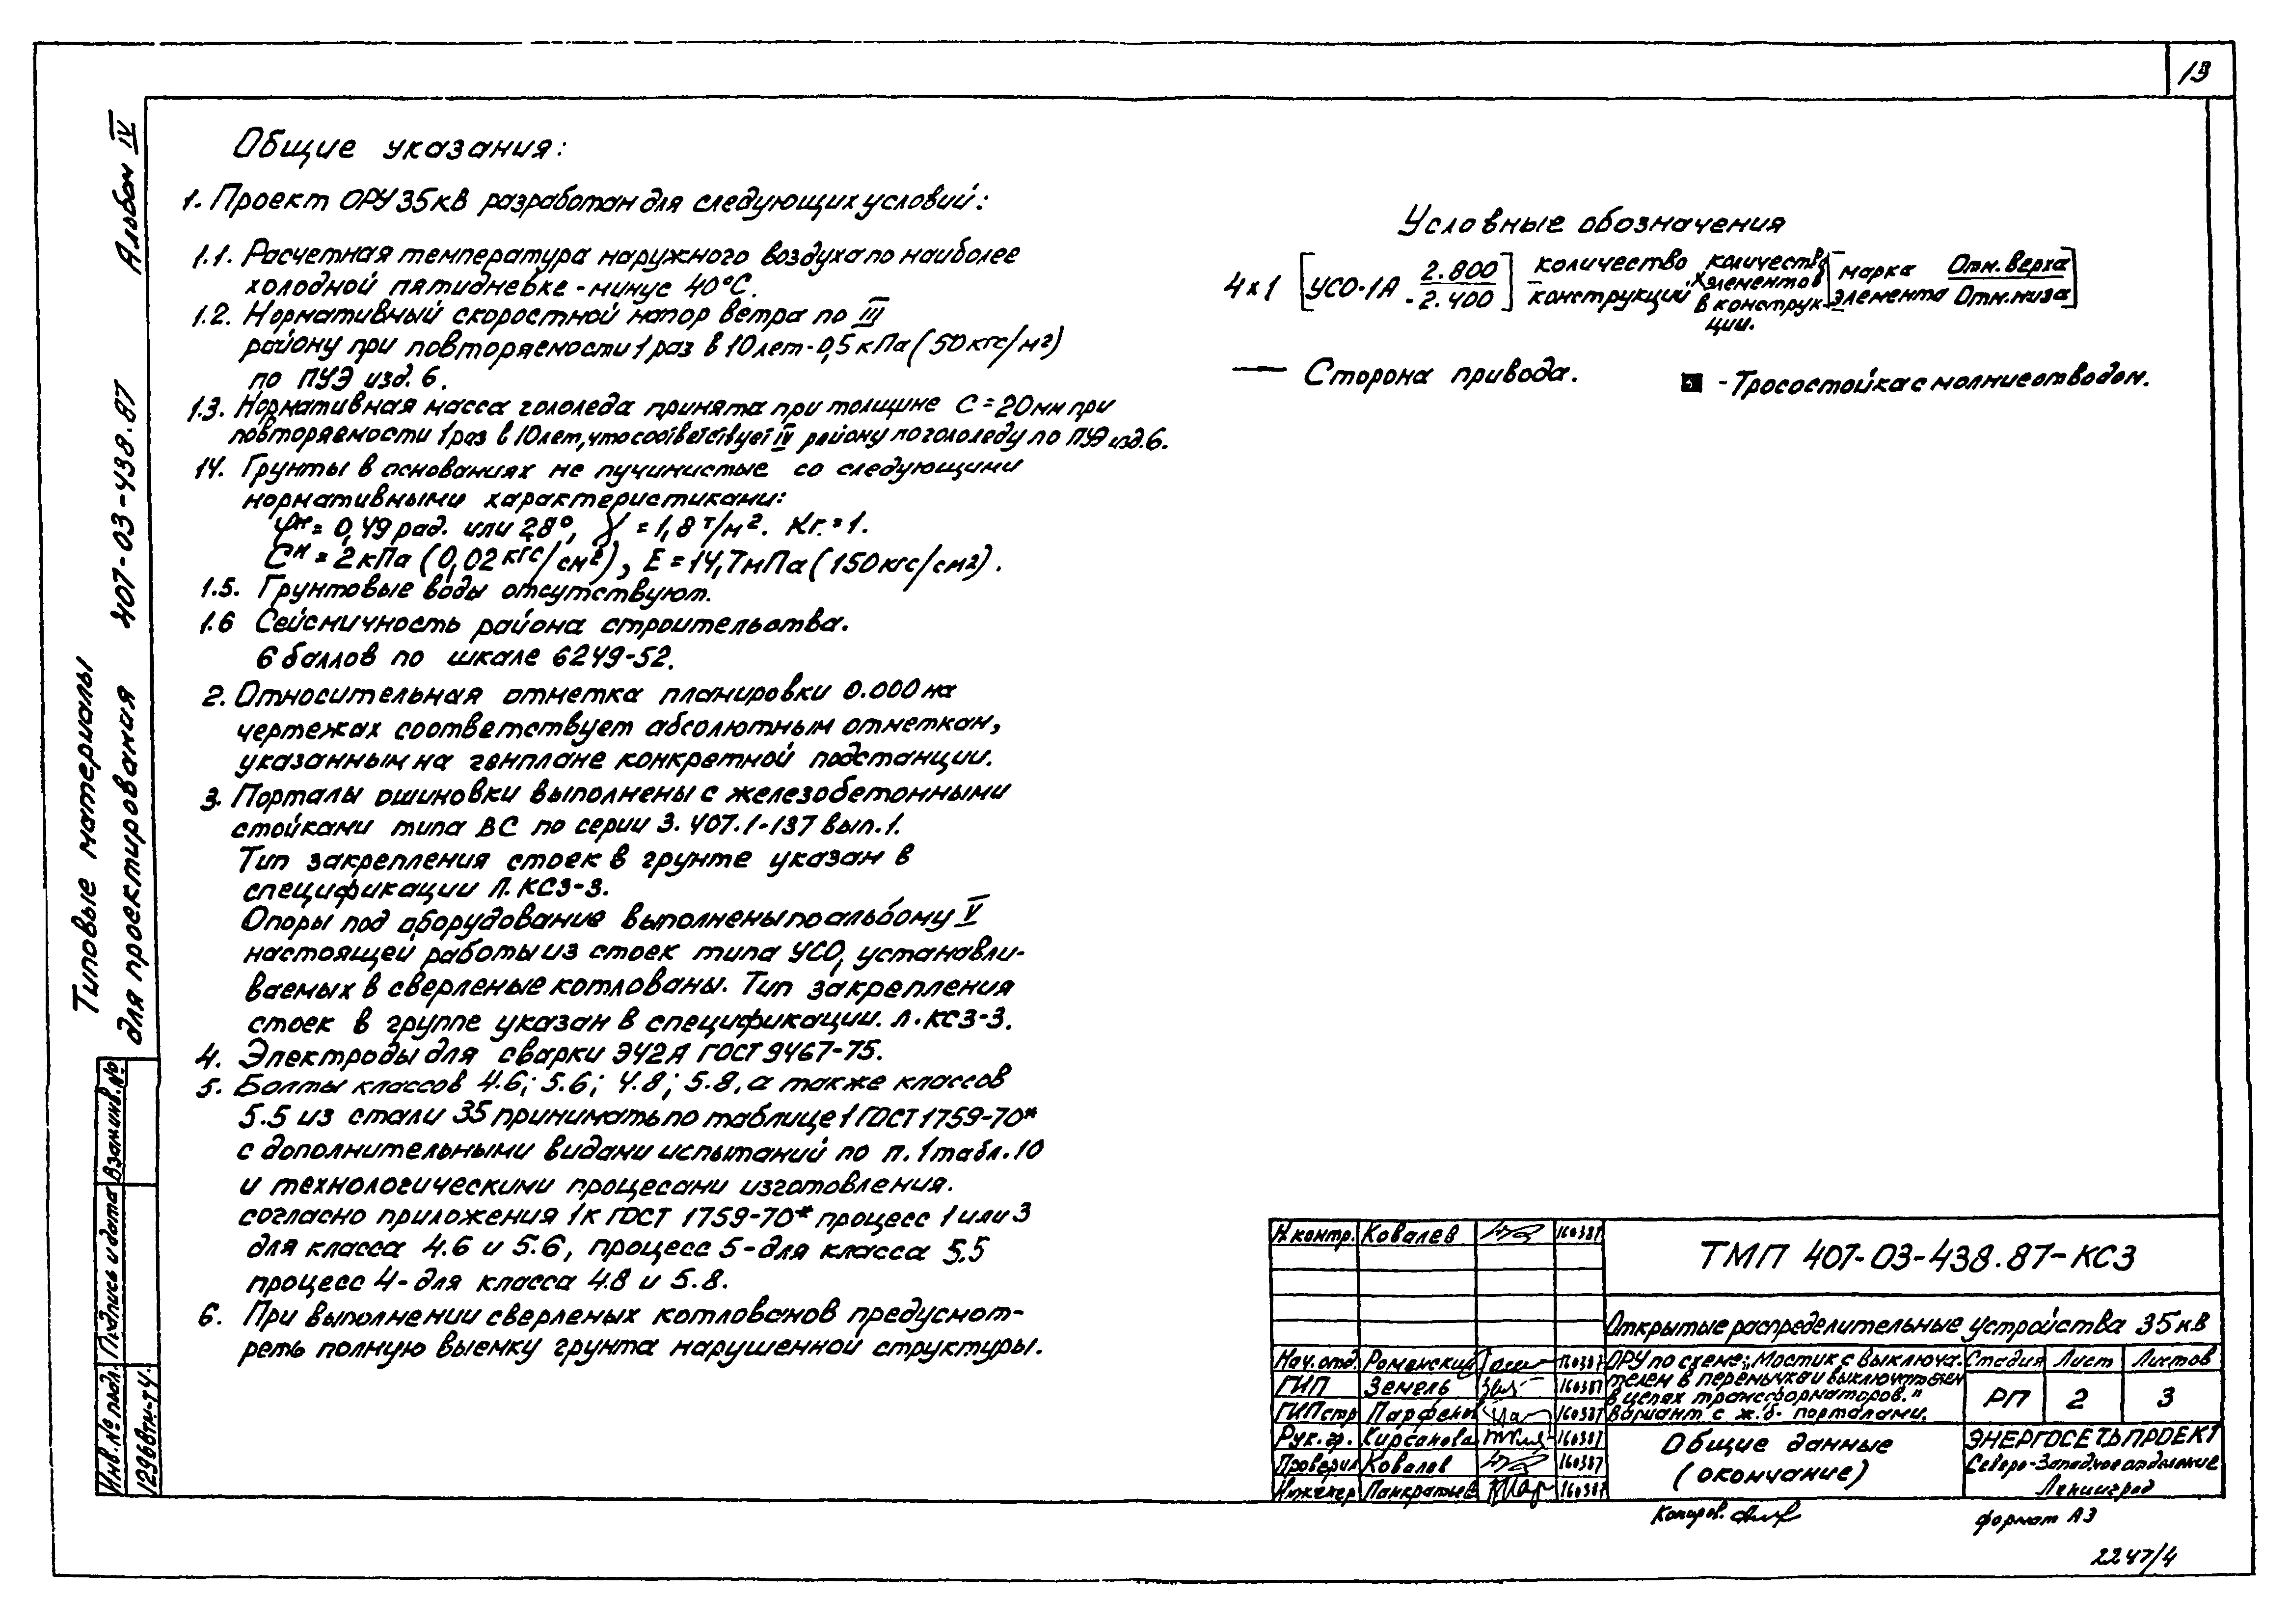 13
Альбом IV
407-03-438.87
Типовые материалы
для проектирования
Общие указания:
1. Проект ОРУ 35кВ разработан для следующих условий:
1.1. Расчетная температура наружного воздуха по наиболее
холодной пятидневке - минус 40°С.
1.2. Нормативный скоростной напор ветра по III
району при повторяемости 1 раз в 10 лет - 0,5 кПа (50кгс/м²)
по ПУЭ изд. 6.
1.3. Нормативная масса гололеда принята при толщине С = 20мм при
повторяемости 1 раз в 10лет, что соответствует IV району по гололеду по ПУЭ изд. 6.
14. Грунты в основаниях не пучинистые со следующими
нормативными характеристиками:
φн = 0,49 рад. или 28°, γ = 1,8 т/м². Кг. = 1.
Сн = 2 кПа (0,02 кгс/см²), Е = 14,7мПа (150кгс/см²).
1.5. Грунтовые воды отсутствуют.
1.6 Сейсмичность района строительства.
6 баллов по шкале 6249-52.
2. Относительная отметка планировки 0.000 на
чертежах соответствует абсолютным отметкам,
указанным на генплане конкретной подстанции.
3. Порталы ошиновки выполнены с железобетонными
стойками типа ВС по серии 3.407.1-137 вып. 1.
Тип закрепления стоек в грунте указан в
спецификации Л. КС3-3.
Опоры под оборудование выполнены по альбому V
настоящей работы из стоек типа УСО, устанавли-
ваемых в сверленые котлованы. Тип закрепления
стоек в группе указан в спецификации. л. КС3-3.
4. Электроды для сварки Э42А ГОСТ 9467-75.
5. Болты классов 4.6; 5.6; 4.8; 5.8, а также классов
5.5 из стали 35 принимать по таблице 1 ГОСТ 1759-70*
с дополнительными видами испытаний по п. 1 табл. 10
и технологическими процесами изготовления.
согласно приложения 1 к ГОСТ 1759-70* процесс 1 или 3
для класса 4.6 и 5.6, процесс 5 - для класса 5.5
процесс 4 - для класса 4.8 и 5.8.
6. При выполнении сверленых котлованов предусмот-
реть полную выемку грунта нарушенной структуры.
Условные обозначения
4x1 [УСО-1А 2.800 / -2.400] количество конструкций x количество элементов в конструк-ции. [марка элемента Отм. верха / Отм. низа]
— Сторона привода.
- Тросостойка с молниеотводом.
Взам.инв.№
Подпись и дата
Инв. № подл.
12968тм-т4
Н.контр. Ковалев 160387
ТМП 407-03-438.87-КС3
Открытые распределительные устройства 35кВ
Нач.отд. Роменский
ГИП Земель 160387
ГИПстр Парфенов 160387
Рук. гр. Кирсанова 160387
Проверил Ковалев 160387
Инженер Панкратьев 160387
ОРУ по схеме: „Мостик с выключа-
телем в перемычке и выключателем
в цепях трансформаторов."
Вариант с ж.б. порталами.
Стадия Лист Листов
РП 2 3
Общие данные
(окончание)
ЭНЕРГОСЕТЬПРОЕКТ
Северо-Западное отделение
Ленинград
Копиров.
формат А3
2247/4